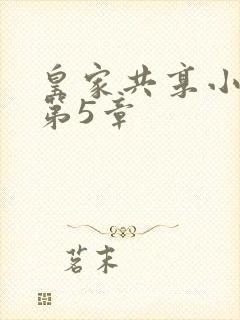 皇家共享小
第5章
茗末